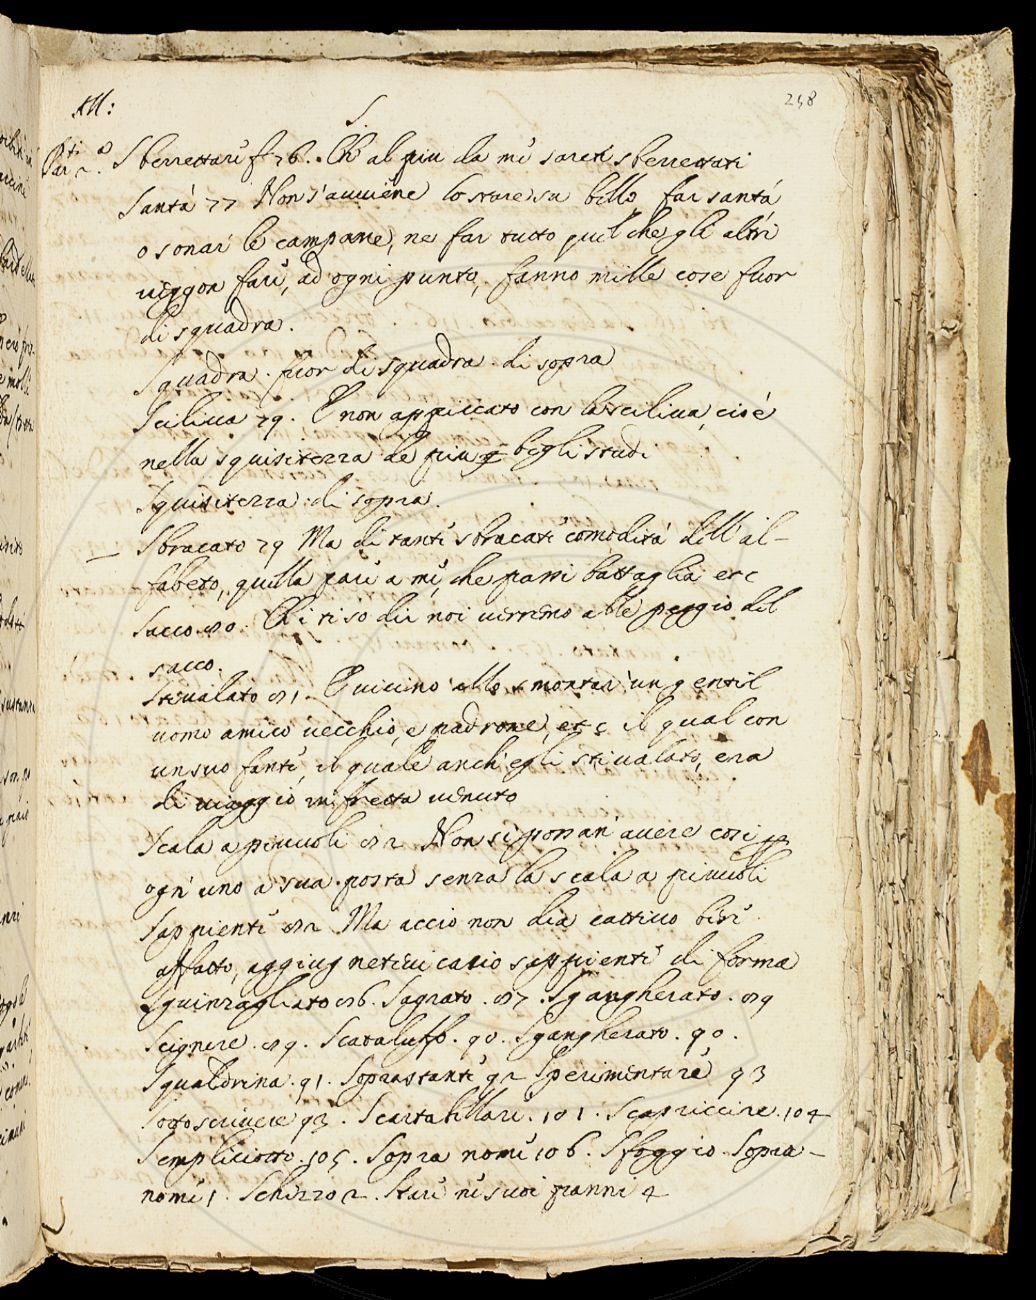 All: S. 258
Par.ti 2.a Sberrettare f. 76. Chi al piu da me sareti sberrettati
Santá 77 Non s'auuiene lo stare su bello far santá
o sonar le campane, ne far tutto quel che gli altri
ueggon fare, ad ogni punto, fanno mille cose fuor
di squadra.
Squadra. fuor di squadra. di sopra
Sciliua 79. E non appiccato con la sciliua, cioé
nella squisitezza de piu begli studi
Squisitezza: di sopra.
Sbracato 79 Ma di tante sbracate comoditá dell'al-
fabeto, quella pare a me, che passi battaglia etc
Sacco. 80. Chi ti so dir noi uerremo alle peggio del
sacco.
Stiualato 81. E uicino allo smontar un gentil
uomo amico uecchio, e padrone, etc il qual con
un suo fante, il quale anch'egli stiualato, era
di uiaggio in fretta uenuto
Scala a piuuoli 82 Non si possan' auere cosi
ogn'uno a sua posta senza la scala a piuuoli
Sappiente 82 Ma accio non dia cattiuo bere
affatto, aggiugneteui cacio sappiente di forma
Sguinzagliato 86. Sagrato. 87. Sgangherato. 89
Scignere. 89. Scataluffo. 90. Sgangherato. 90.
Squaldrina. 91. Soprastante 92 Sperimentare 93
Sottoscriuere 93. Scartabellare. 101. Scapriccire. 104
Sempliciotto. 105. Sopra nome 106. Sfoggio. Sopra-
nome 1. Schizzo 2. Stare ne suoi panni 4